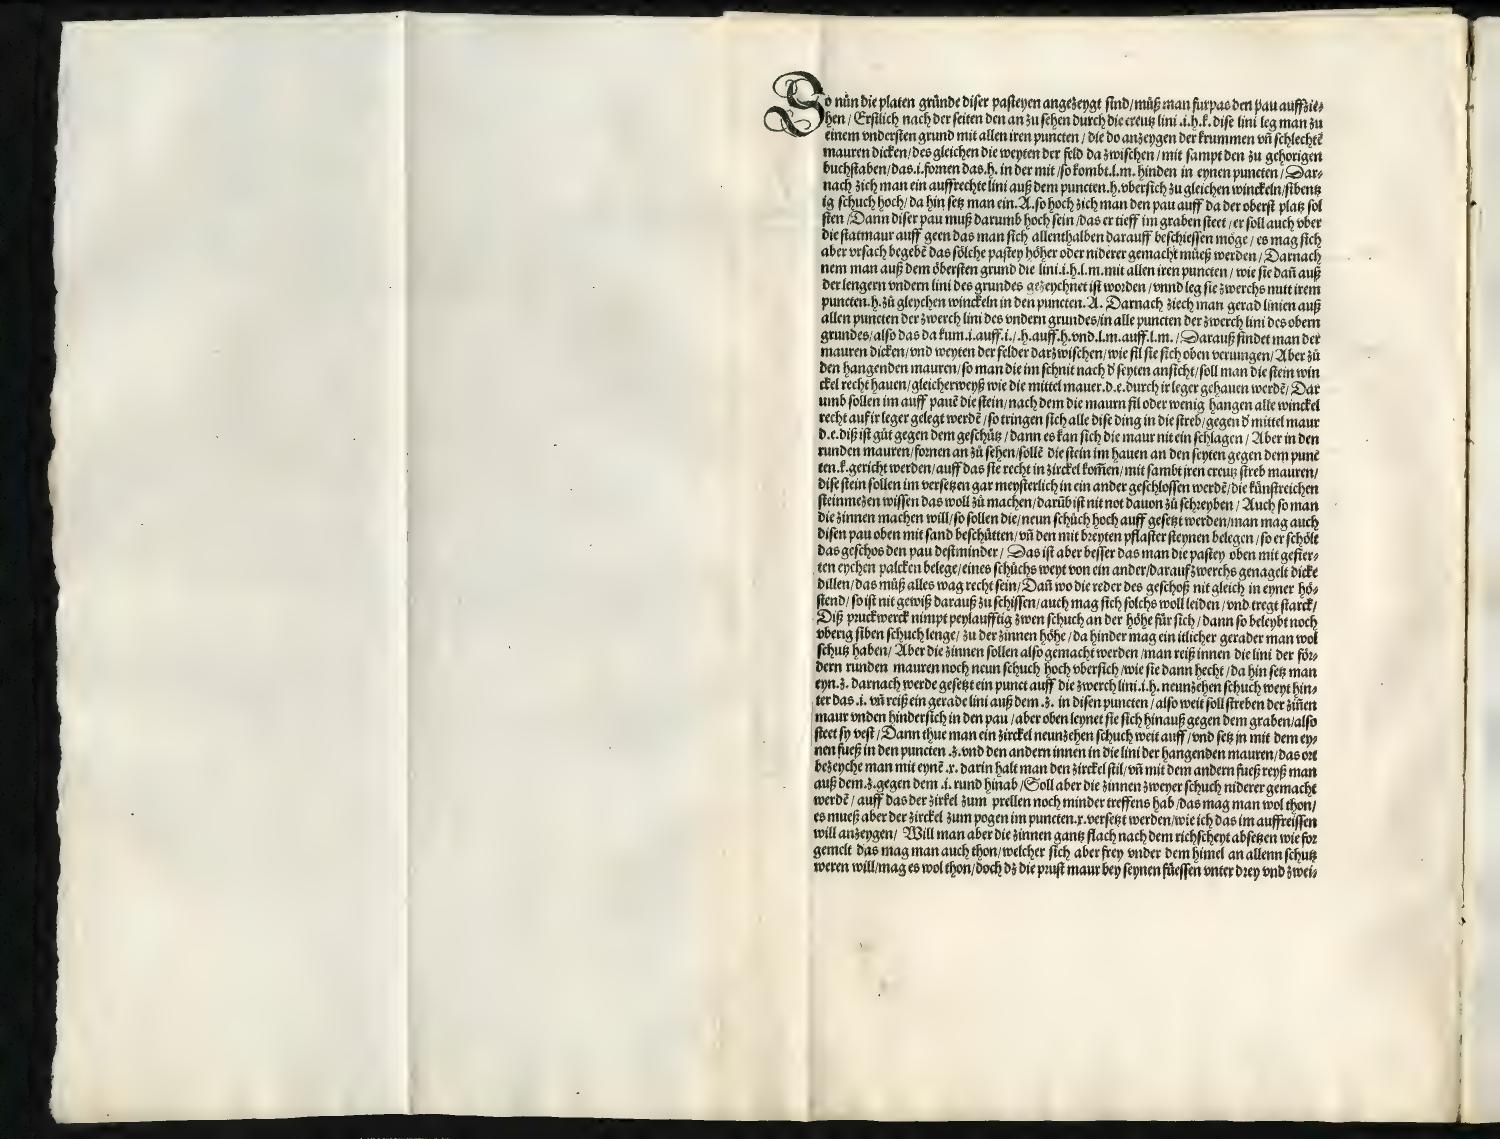 So nůn die platen grůnde diser pasteyen angezeygt sind/můß man furpas den pau auffzie⸗
hen/ Erstlich nach der seiten den an zu sehen durch die creutz lini .i.h.k. dise lini leg man zu
einem vndersten grund mit allen iren puncten/ die do anzeygen der krummen vñ schlechtẽ
mauren dicken/des gleichen die weyten der feld da zwischen/mit sampt den zu gehorigen
buchstaben/das.i.fornen das.h. in der mit/so kombt.l.m. hinden in eynen puncten/Dar⸗
nach zich man ein auffrechte lini auß dem puncten.h.vbersich zu gleichen winckeln/sibentz
ig schuch hoch/da hin setz man ein.A.so hoch zich man den pau auff da der oberst platz sol
sten/Dann diser pau muß darumb hoch sein/das er tieff im graben steet/er soll auch vber
die statmaur auff geen das man sich allenthalben darauff beschiessen möge/es mag sich
aber vrsach begebẽ das sölche pastey höher oder niderer gemacht můeß werden/Darnach
nem man auß dem öbersten grund die lini.i.h.l.m.mit allen iren puncten/wie sie dañ auß
der lengern vndern lini des grundes gezeychnet ist worden/vnnd leg sie zwerchs mitt irem
puncten.h.zů gleychen winckeln in den puncten.A. Darnach ziech man gerad linien auß
allen puncten der zwerch lini des vndern grundes/in alle puncten der zwerch lini des obern
grundes/also das da kum.i.auff.i./.h.auff.h.vnd.l.m.auff.l.m./Darauß findet man der
mauren dicken/vnd weyten der felder darzwischen/wie fil sie sich oben veriungen/Aber zů
den hangenden mauren/so man die im schnit nach ď seyten ansicht/soll man die stein win
ckel recht hauen/gleicherweyß wie die mittel mauer.d.e.durch ir leger gehauen werdẽ/Dar
umb sollen im auff pauẽ die stein/nach dem die maurn fil oder wenig hangen alle winckel
recht auf ir leger gelegt werdẽ/so tringen sich alle dise ding in die streb/gegen ď mittel maur
d.e.diß ist gůt gegen dem geschůtz/dann es kan sich die maur nit ein schlagen/Aber in den
runden mauren/fornen an zů sehen/sollẽ die stein im hauen an den seyten gegen dem punc
ten.k.gericht werden/auff das sie recht in zirckel kom̃en/mit sambt iren creutz streb mauren/
dise stein sollen im versetzen gar meysterlich in ein ander geschlossen werdẽ/die kůnstreichen
steinmezen wissen das woll zů machen/darũb ist nit not dauon zů schreyben/Auch so man
die zinnen machen will/so sollen die/neun schůch hoch auff gesetzt werden/man mag auch
disen pau oben mit sand beschůtten/vñ den mit breyten pflaster steynen belegen/so erschölt
das geschos den pau destminder/Das ist aber besser das man die pastey oben mit gefier⸗
ten eychen palcken belege/eines schůchs weyt von ein ander/darauf zwerchs genagelt dicke
dillen/das můß alles wag recht sein/Dañ wo die reder des geschoß nit gleich in eyner hö⸗
stend/so ist nit gewiß darauß zu schissen/auch mag sich solchs woll leiden/vnd tregt starck/
Diß pruckwerck nimpt peylaufftig zwen schuch an der höhe für sich/dann so beleybt noch
vberig siben schuch lenge/zu der zinnen höhe/da hinder mag ein itlicher gerader man wol
schutz haben/Aber die zinnen sollen also gemacht werden/man reiß innen die lini der för⸗
dern runden mauren noch neun schuch hoch vbersich/wie sie dann hecht/da hin setz man
eyn.z. darnach werde gesetzt ein punct auff die zwerch lini.i.h. neunzehen schuch weyt hin⸗
ter das .i. vñ reiß ein gerade lini auß dem .z. in disen puncten/also weit soll streben der ziñen
maur vnden hindersich in den pau/aber oben leynet sie sich hinauß gegen dem graben/also
steet sy vest/Dann thue man ein zirckel neunzehen schuch weit auff/vnd setz in mit dem ey⸗
nen fueß in den puncten .z.vnd den andern innen in die lini der hangenden mauren/das ort
bezeyche man mit eynẽ .x. darin halt man den zirckel stil/vñ mit dem andern fueß reyß man
auß dem.z.gegen dem .i. rund hinab/Soll aber die zinnen zweyer schuch niderer gemacht
werdẽ/auff das der zirkel zum prellen noch minder treffens hab/das mag man wol thon/
es mueß aber der zirckel zum pogen im puncten.x.versetzt werden/wie ich das im auffreissen
will anzeygen/ Will man aber die zinnen gantz flach nach dem richscheyt absetzen wie for
gemelt das mag man auch thon/welcher sich aber frey vnder dem himel an allenn schutz
weren will/mag es wol thon/doch dz die prust maur bey seynen füessen vnter drey vnd zwei⸗